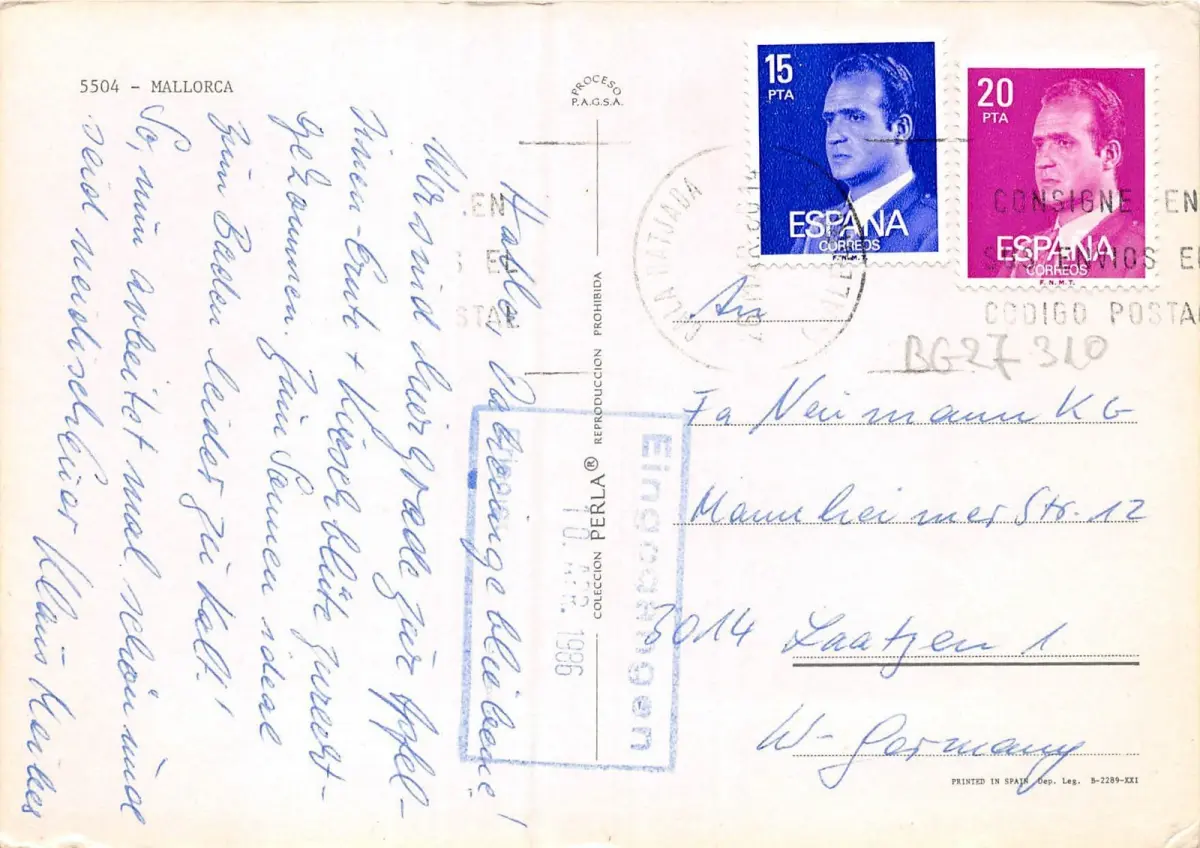 5504 - MALLORCA
PROCESO
P.A.G.S.A.
15
PTA
ESPAÑA
CORREOS
F.N.M.T.
20
PTA
ESPAÑA
CORREOS
F.N.M.T.
CALA RATJADA
CONSIGNE EN
SUS ENVIOS EL
CODIGO POSTAL
EN
EL
STAL
BG27 310
Hallo, Daheimgebliebene!
Wir sind hier grade zur Apfel-
sinen-Ernte + Kirschblüte zurecht-
gekommen. Zum Sonnen ideal
zum Baden leider zu kalt!
So, nun arbeitet mal schön und
seid neidisch Euer Klaus
An
Fa Neumann KG
Mannheimer Str. 12
3014 Laatzen 1
W-Germany
Eingegangen
10. APR. 1986
COLECCION PERLA® REPRODUCCION PROHIBIDA
PRINTED IN SPAIN Dep. Leg. B-2289-XXI